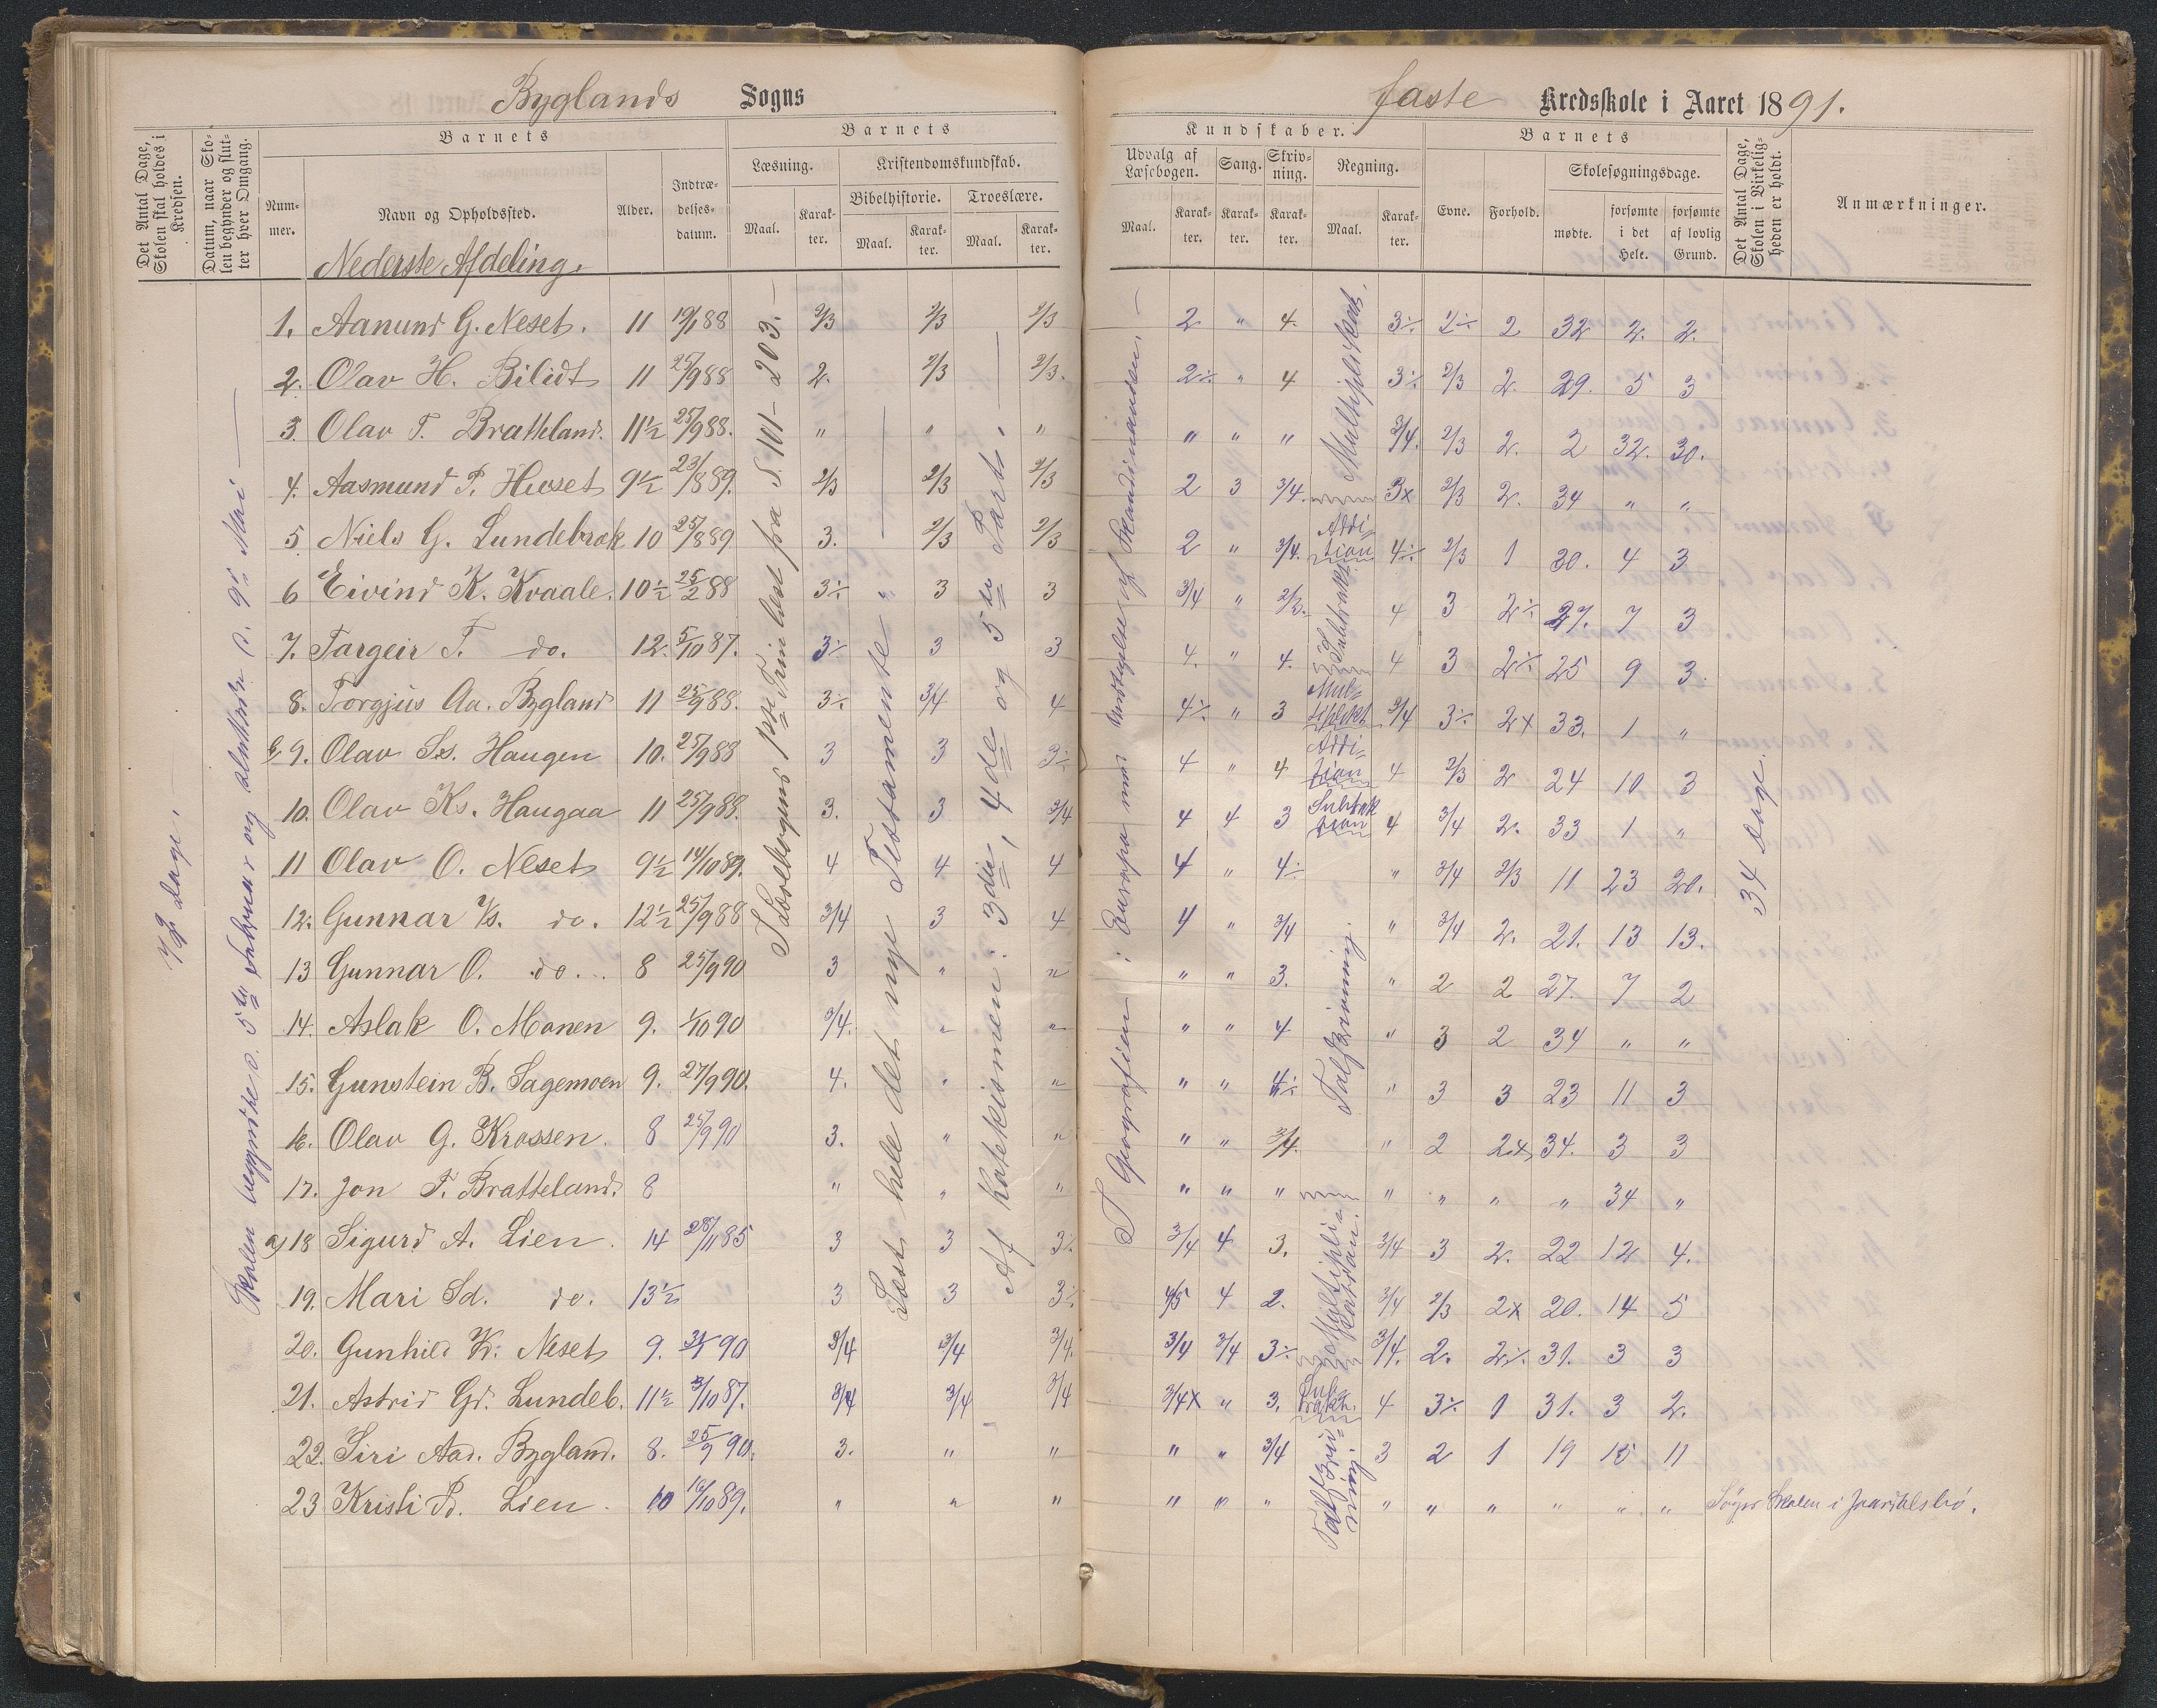 Byglands Sogns
faste Kredsskole i Aaret 1891.
Det Antal Dage, Skolen skal holdes i Kredsen.
Datum, naar Skolen begynder og slutter hver Omgang.
Barnets
Nummer.
Navn og Opholdssted.
Alder.
Indtrædelses-datum.
Barnets
Læsning.
Maal.
Karakter.
Kristendomskundskab.
Bibelhistorie.
Maal.
Karakter.
Troeslære.
Maal.
Karakter.
Kundskaber.
Udvalg af Læsebogen.
Maal.
Karakter.
Sang.
Karakter.
Skrivning.
Karakter.
Regning.
Maal.
Karakter.
Barnets
Evne.
Forhold.
Skolesøgningsdage.
mødte.
forsømte i det Hele.
forsømte af lovlig Grund.
Det Antal Dage, Skolen i Virkeligheden er holdt.
Anmærkninger.
Nederste Afdeling.
1. Aanund G. Neset. 11 19/1 88 2/3 2/3 2/3 2 " 4. 3÷ 2÷ 2 32 2. 2.
2. Olav H. Bilidt 11 25/9 88 2. 2/3 2/3. 2÷ " 4 3÷ 2/3 2. 29. 5 3
3. Olav T. Bratteland. 11½ 25/9 88. " " " " " " 3/4. 2/3 2. 2 32. 30.
4. Aasmund P. Huset 9½ 23/8 89. 2/3 2/3 2/3 2 3 3/4. 3x 2/3 2. 34 " "
5. Niels G. Lundebrok 10 25/8 89 3. 2/3 2/3 2 " 3/4. 4÷ 2/3 1 30. 4 3
6 Eivind K. Kvaale. 10½ 25/2 88 3÷ " 3 3 3/4 " 2/3. 4 3 2÷ 27. 7 3
7. Targeir T. do. 12. 5/10 87. 3÷ 3 3 4. " 4. 4 3 2÷ 25 9 3.
8. Torgjus Aa. Bygland 11 25/9 88. 3÷ 3/4 4 4÷ " 3 3/4 3÷ 2x 33. 1 "
9. Olav Ss. Haugen 10. 25/9 88 3 3 3÷ 4 " 4 4 2/3 2 24 10 3
10. Olav Ks. Haugaa 11 25/9 88. 3. 3 3/4 4 4 3 4 3/4 2. 33 1 "
11 Olav O. Neset 9½ 14/10 89. 4 4 4 4 " 4÷ " 3/4 2/3 11 23 20.
12. Gunnar do. 12½ 25/9 88 3/4 3 4 4 " 3/4 " 3/4 2. 21. 13 13.
13 Gunnar O. do. 8 25/9 90 3 " " " " 3. " 2 2 27. 7 2
14. Aslak O. Monen 9. 1/10 90 3/4. " " " " 4 " 3 2 34 " "
15. Gunstein B. Sagemoen 9. 27/9 90. 4. " " " " 4÷ " 3 3 23 11 3
16. Olav G. Krossen. 8 25/9 90 3. " " " " 3/4. " 2 2x 34. 3 3
17. Jon T. Bratteland. 8 " " " " " " " " " " 34 "
a) 18 Sigurd A. Lien. 14 28/11 85 3 3 3÷ 3/4 4 3. 3/4 3 2. 22 12 4.
19. Mari Sd. do. 13½ 3 3 3÷ 4/5 4 2. 3/4 2/3 2x 20. 14 5
20. Gunhild K. Neset 9. 90 3/4 3/4 3/4. 3/4 3/4 3÷ 3/4. 2. 2÷ 31. 3 3
21. Astrid Gd. Lundeb. 11½ 3/10 87. 3/4 3/4 3/4 3/4x " 3. 4 3÷ 1 31. 3 2.
22. Siri Aad. Bygland. 8. 25/9 90. 3. " " " " 3/4 3 2 1 19 15 11
23 Kristi Lien. 10 10/10 89. " " " " " " " " " " " " Søger Skolen i
72 Dage.
Skolen begyndte d. 5te Februar og sluttede d. 9de Mai
Læsebogens 1ste Trin læst fra S. 101-203.
Læst hele det nye Testamente
Af Katekismen: 3die, 4de og 5te Part.
I Geografien: Europa med Undtagelse af Skandinavien.
Multiplikat.
Addition
Subtrakt.
Multiplikt.
Addition
Subtraktion
Talskrivning.
Multiplikation.
Subtrakt.
Talskrivning.
34 Dage.